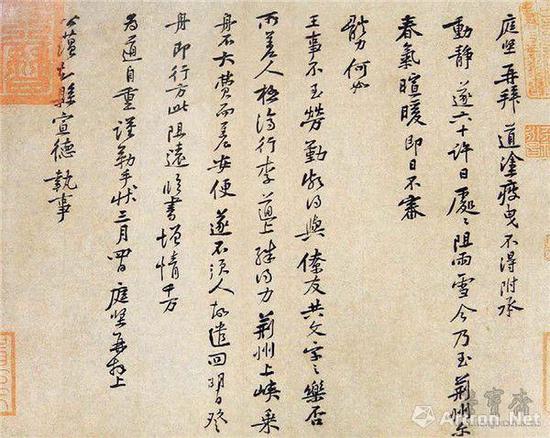 庭坚再拜道塗疲曳不得附承
動静遂六十許日處々阻雨雪今乃至荆州尔
春氣暄暖即日不審
體力何如
王事不至勞勤頗得與僚友共文字之樂否
所差人極濟行李道上殊得力荆州上峡乘
舟不大費而差安便遂不須人故遣回明日登
舟即行方此阻遠臨書增情千万
為道自重謹勒手狀三月四日庭坚再拜上
公蕴知縣宣德執事
Artron.Net